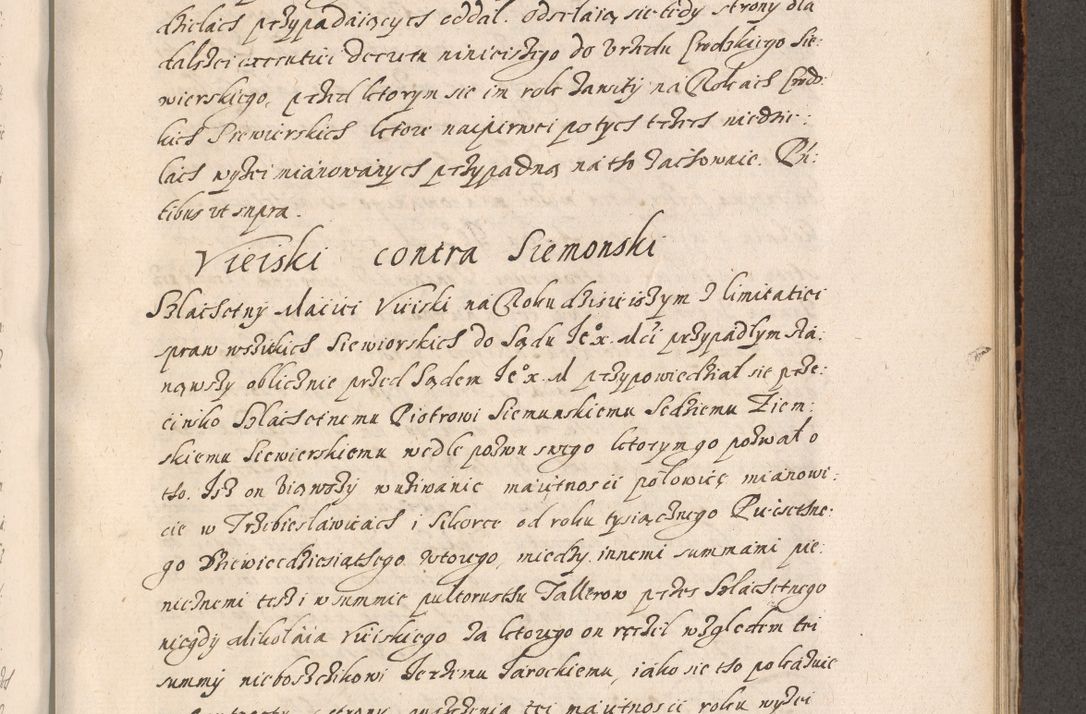 dzielach przypadaiących oddal. Odsełaią się tedy strony dla
dalszei executiei decretu ninieiszego do Vrzędu Grodzkiego Sie:
wierskiego, przed ktorym sie im rok zawity na Rokach Grodz:
kich Siewierskich ktore naipierwei po tych trzech niedzie:
lach wyżei mianowanych przypadną na tho zachowaie. Pñ:
tibus ut supra.
Vieiski contra Siemonski
Szlachetny Maciei Vieiski na Roku dzisieiszym z limitatiei
spraw wszitkich Siewiorskich do Sądu Je° x. Mći przypadłym sta:
nąwszy oblicznie przed Sądem Je° x. M przypowiedział się prze:
ciwko Szlachetnemu Piotrowi Siemunskiemu Sedziemu Ziem:
skiemu Siewierskiemu wedle pozwu swego ktorym go pozwał o
tho. Isz on wziąwszy w uziwanie maiętnosci połowicę mianowi:
cie w Trzebiesławicach i Sikorce od roku tysiącznego Pięcsethne:
go Dziewiecdziesiathego wtorego, miedzy innemi summami pie:
nieznemi tesz i w summie pultorusthu Tallerow przes Szlachetnego
niegdy Mikołaia Vieiskiego za ktorego on ręczel względem tei
summy nieboszczikowi Jerzemu Jarockiemu, iako sie tho pokazuie
strony tei maiętnosci roku wyżei